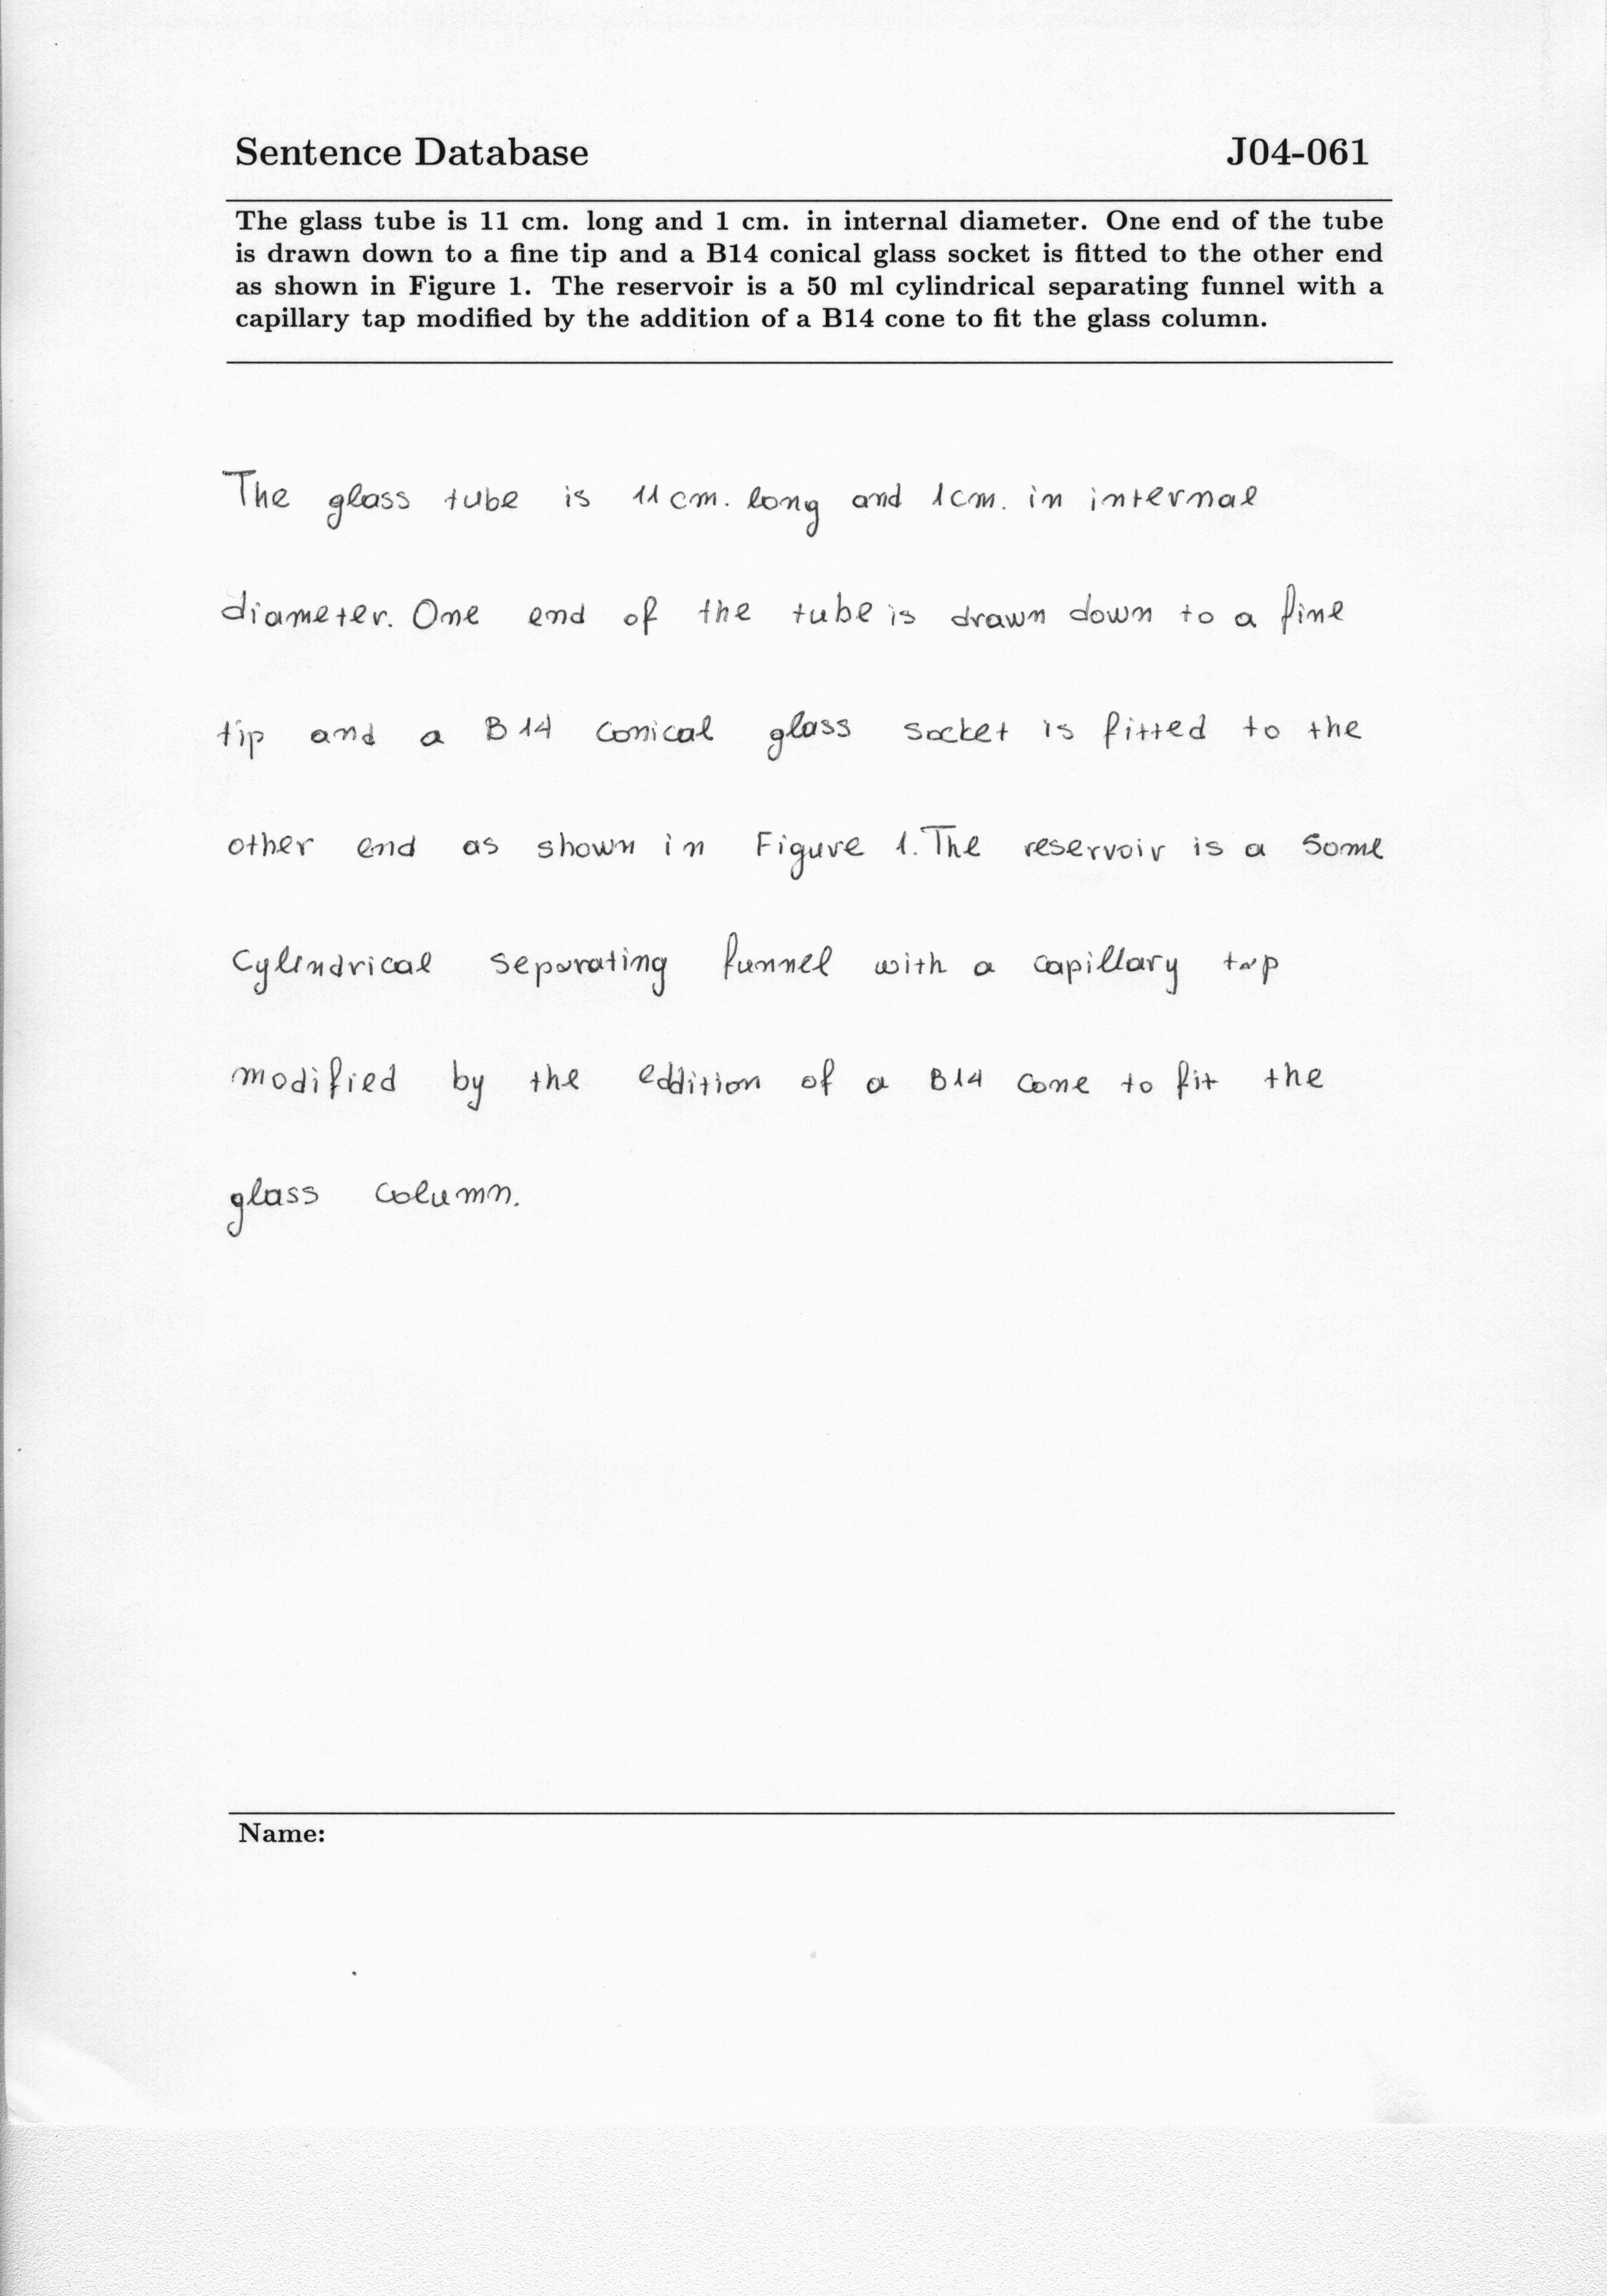 Sentence Database J04-061
The glass tube is 11 cm. long and 1 cm. in internal diameter. One end of the tube
is drawn down to a fine tip and a B14 conical glass socket is fitted to the other end
as shown in Figure 1. The reservoir is a 50 ml cylindrical separating funnel with a
capillary tap modified by the addition of a B14 cone to fit the glass column.
The glass tube is 11 cm. long and 1 cm. in internal
diameter. One end of the tube is drawn down to a fine
tip and a B14 conical glass socket is fitted to the
other end as shown in Figure 1. The reservoir is a some
cylindrical separating funnel with a capillary tap
modified by the eddition of a B14 cone to fit the
glass column.
Name: